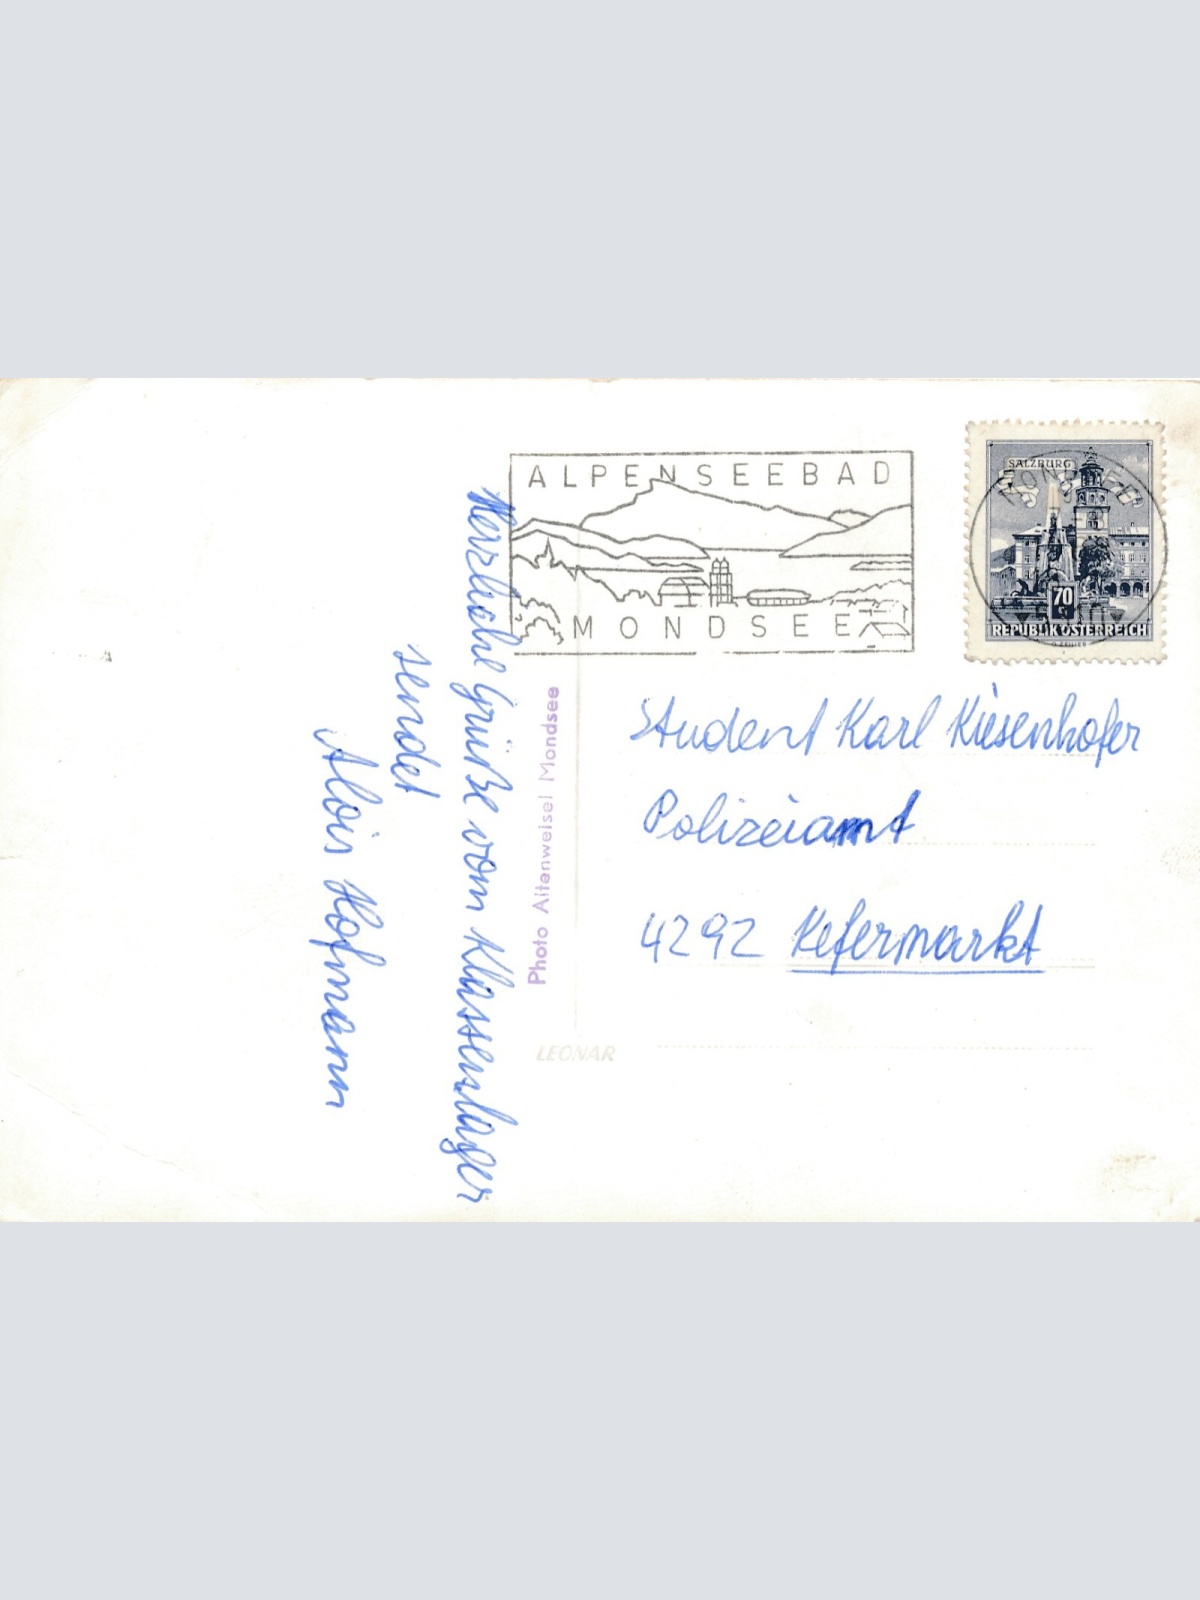 ALPENSEEBAD
MONDSEE
SALZBURG
70
REPUBLIK ÖSTERREICH
Herzliche Grüße vom Klassenlager
sendet
Alois Hofmann
Photo Altenweisel Mondsee
LEONAR
Student Karl Kiesenhofer
Polizeiamt
4292 Kefermarkt